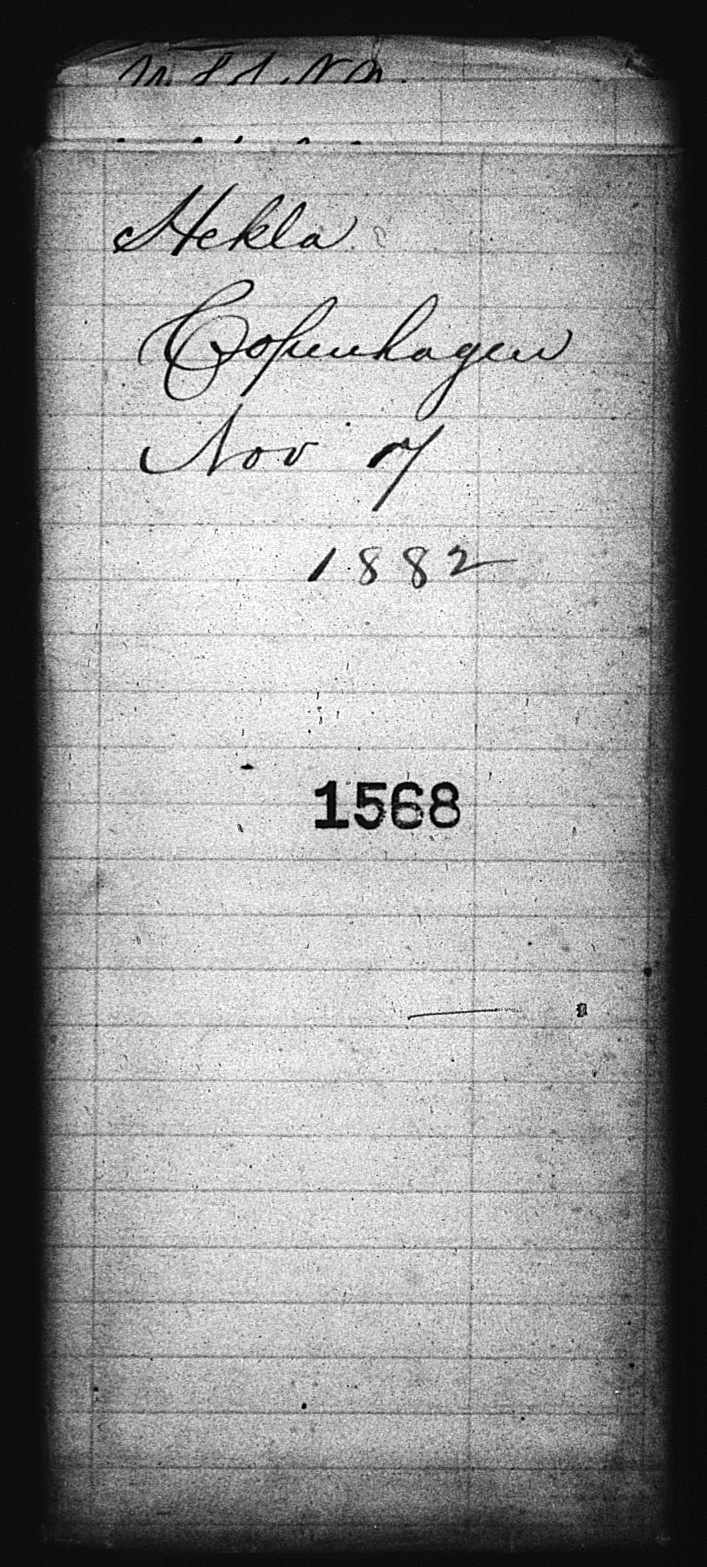 Hekla
Copenhagen
Nov 7
1882
1568